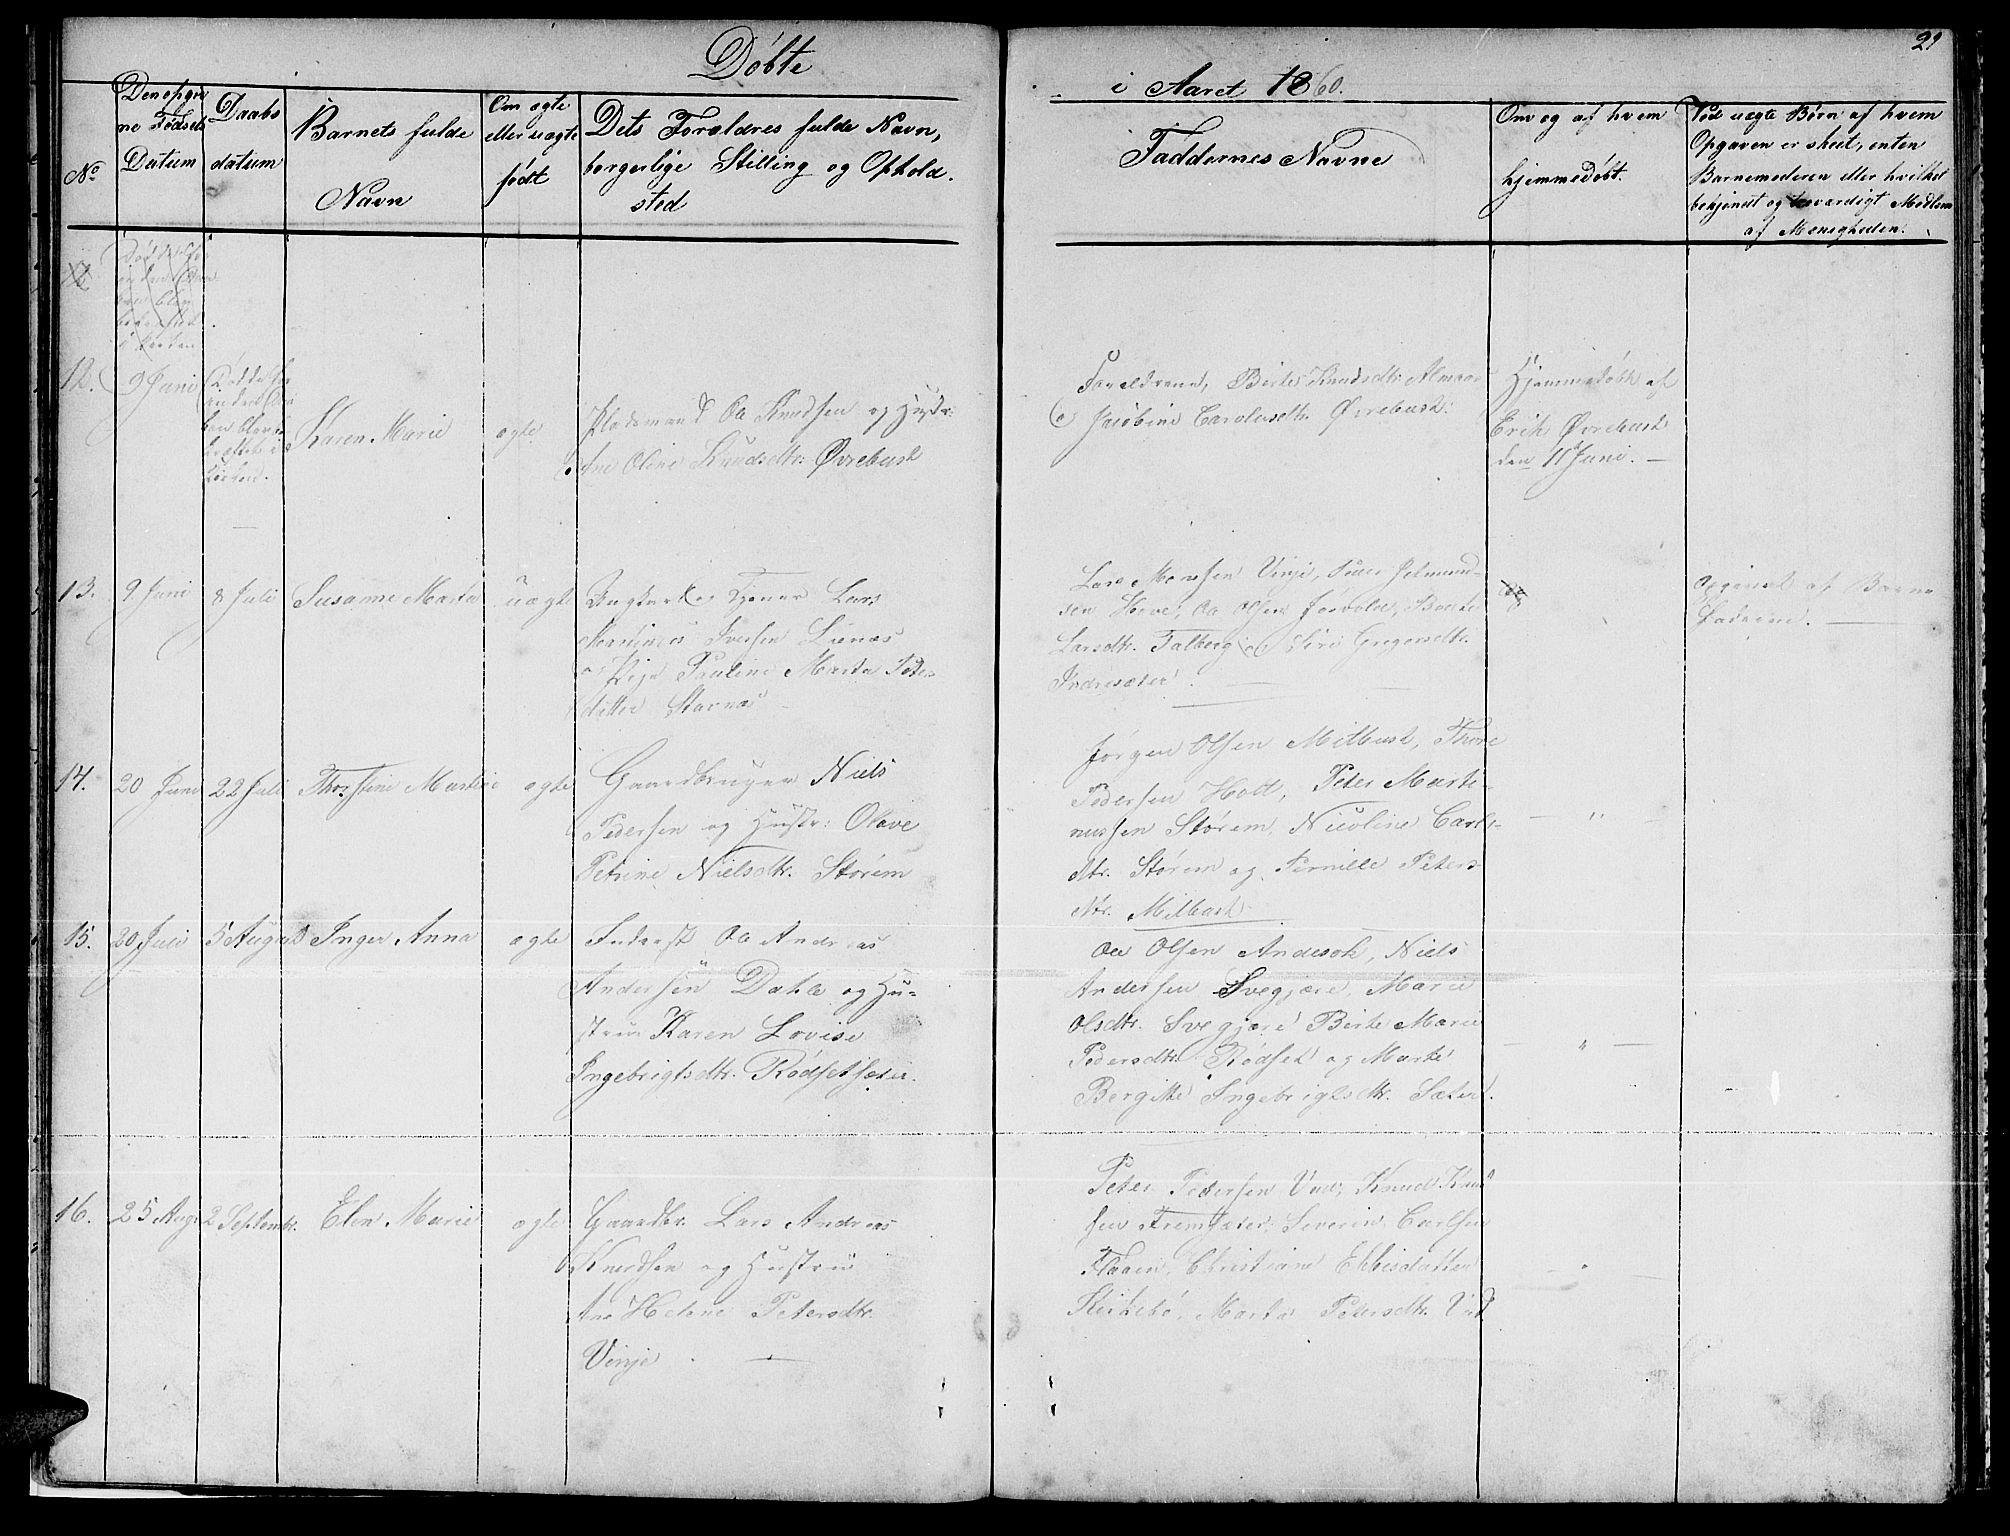 Døbte
i Aaret 1860.
21
No
Den opgivne Fødsels Datum
Daabs datum
Barnets fulde Navn
Om ægte eller uægte født
Dets Forældres fulde Navn, borgerlige Stilling og Opholdsted
Faddernes Navne
Om og af hvem hjemmedøbt.
Ved uægte Børn af hvem
Opgaven er skeet, enten
Barnemoderen eller hvilket
bekjendt og troværdigt Medlem
af Menigheden.
12
12.
9 Juni
Døde før
Karen Marie
ægte
Pladsmand Ole Knudsen og Hustr:
Ane Oline Knudsdtr. Øvrebust
Forældrene, Birte Knudsdtr. Almaas
Jacobine Carolusdtr. Øvrebust.
Hjemmedøbt af
Erik Øvrebust
den 11 Juni.
13.
9 Juni
8 Juli
Susanne Marta
uægte
Ungkarl og Tjener Lars
Martinus Iversen
Pige Pauline Marta Peders
datter Starnæs
Lars Monsen Vinje,
sen Hove, Ole Olsen
Larsdtr. Talberg og Siri Gregersdtr.
Indresæter.
Opgivet af Barne
faderen.
14.
20 Juni
22 Juli
Thorstine Martine
ægte
Gaardbruger Niels
Pedersen og Hustr: Olave
Petrine Nielsdtr. Størem
Jørgen Olsen Milbust, Thore
Pedersen Holt, Peter Marti-
nussen Størem, Nicoline Carls-
dtr. Størem og Pernille Peters-
dtr. Milbust
"
15.
20 Juli
5 August
Inger Anna
ægte
Inderst Ole Andreas
Andersen Dahle og Hu-
stru Karen Lovise
Ingebrigtsdtr. Rødsetsæter.
Ole Olsen Andesok, Niels
Andersen Svegjære, Marie
Olsdtr. Svegjære Birte Marie
Pedersdtr. Rødset og Marte
Bergitte Ingebrigtsdtr. Sæter.
"
16.
25 Aug.
2 Septembr.
Elen Marie
ægte
Gaardbr. Lars Andreas
Knudsen og Hustru
Ane Helene Petersdtr.
Vinje
Peter Pedersen Vad, Knud Knud
sen Fremsæter, Severin Carlsen
Flaaen, Christiane
Kirkebø, Marta Petersdtr. Vad
"